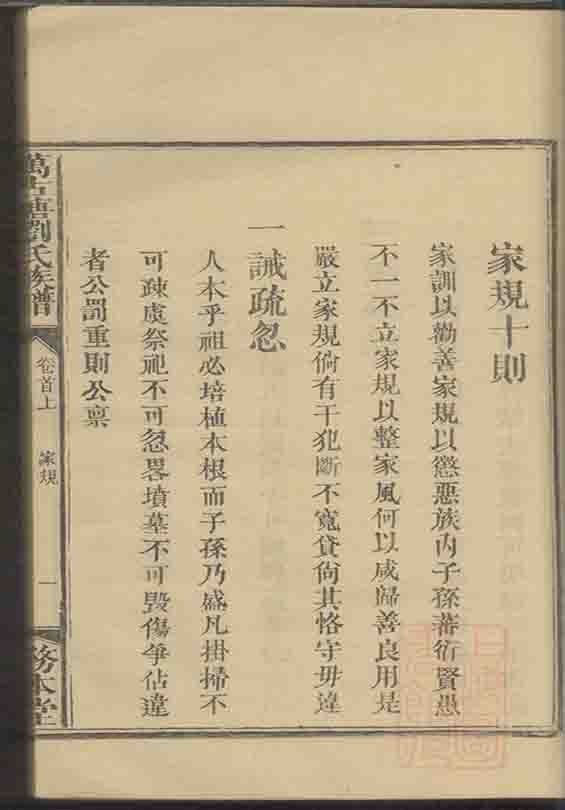 家規十則
家訓以勸善家規以懲惡族內子孫蕃衍賢愚
不一不立家規以整家風何以咸歸善良用是
嚴立家規倘有干犯斷不寬貸尙其恪守毋違
一誡疏忽
人本乎祖必培植本根而子孫乃盛凡掛掃不
可疎虞祭祀不可忽畧墳墓不可毀傷爭佔違
者公罰重則公禀
萬古塘劉氏族譜
卷首上
家規
一
務本堂